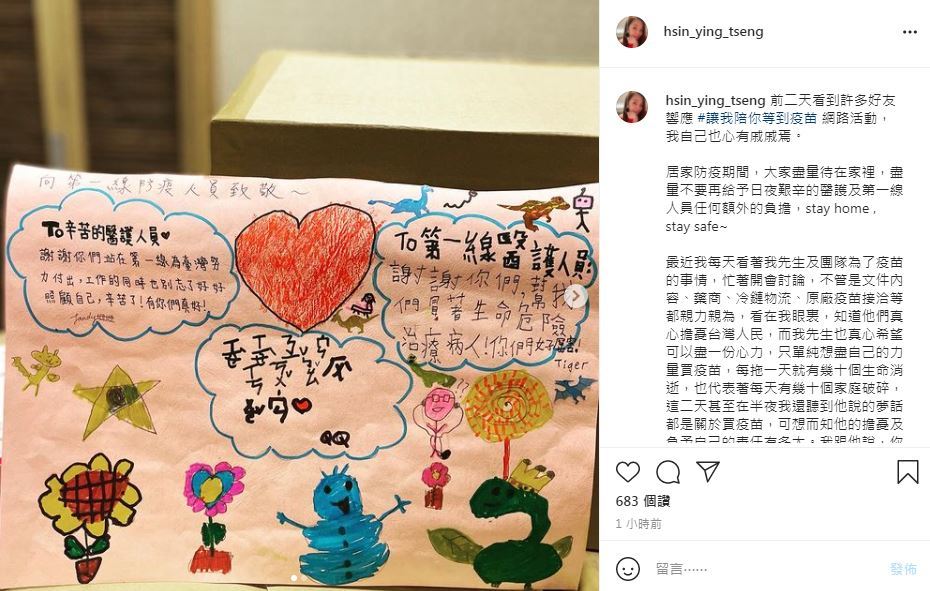 向第一線防疫人員致敬～
To辛苦的醫護人員♥
謝謝你們站在第一線為臺灣努
力付出,工作的同時也別忘了好好
照顧自己,辛苦了!有你們真好!
To第一線醫護人員!
謝謝你們,幫我
們冒著生命危險
治療病人!你們好厲害!
Tiger
QQ
hsin_ying_tseng
hsin_ying_tseng 前二天看到許多好友
響應 #讓我陪你等到疫苗 網路活動，
我自己也心有戚戚焉。
居家防疫期間，大家盡量待在家裡，盡
量不要再給予日夜艱辛的醫護及第一線
人員任何額外的負擔，stay home ,
stay safe~
最近我每天看著我先生及團隊為了疫苗
的事情，忙著開會討論，不管是文件內
容、藥商、冷鏈物流、原廠疫苗接洽等
都親力親為，看在我眼裏，知道他們真
心擔憂台灣人民，而我先生也真心希望
可以盡一份心力，只單純想盡自己的力
量買疫苗，每拖一天就有幾十個生命消
逝，也代表著每天有幾十個家庭破碎，
這二天甚至在半夜我還聽到他說的夢話
都是關於買疫苗，可想而知他的擔憂及
負予自己的責任有多大。我跟他說，你
683 個讚
1 小時前
留言······
發佈